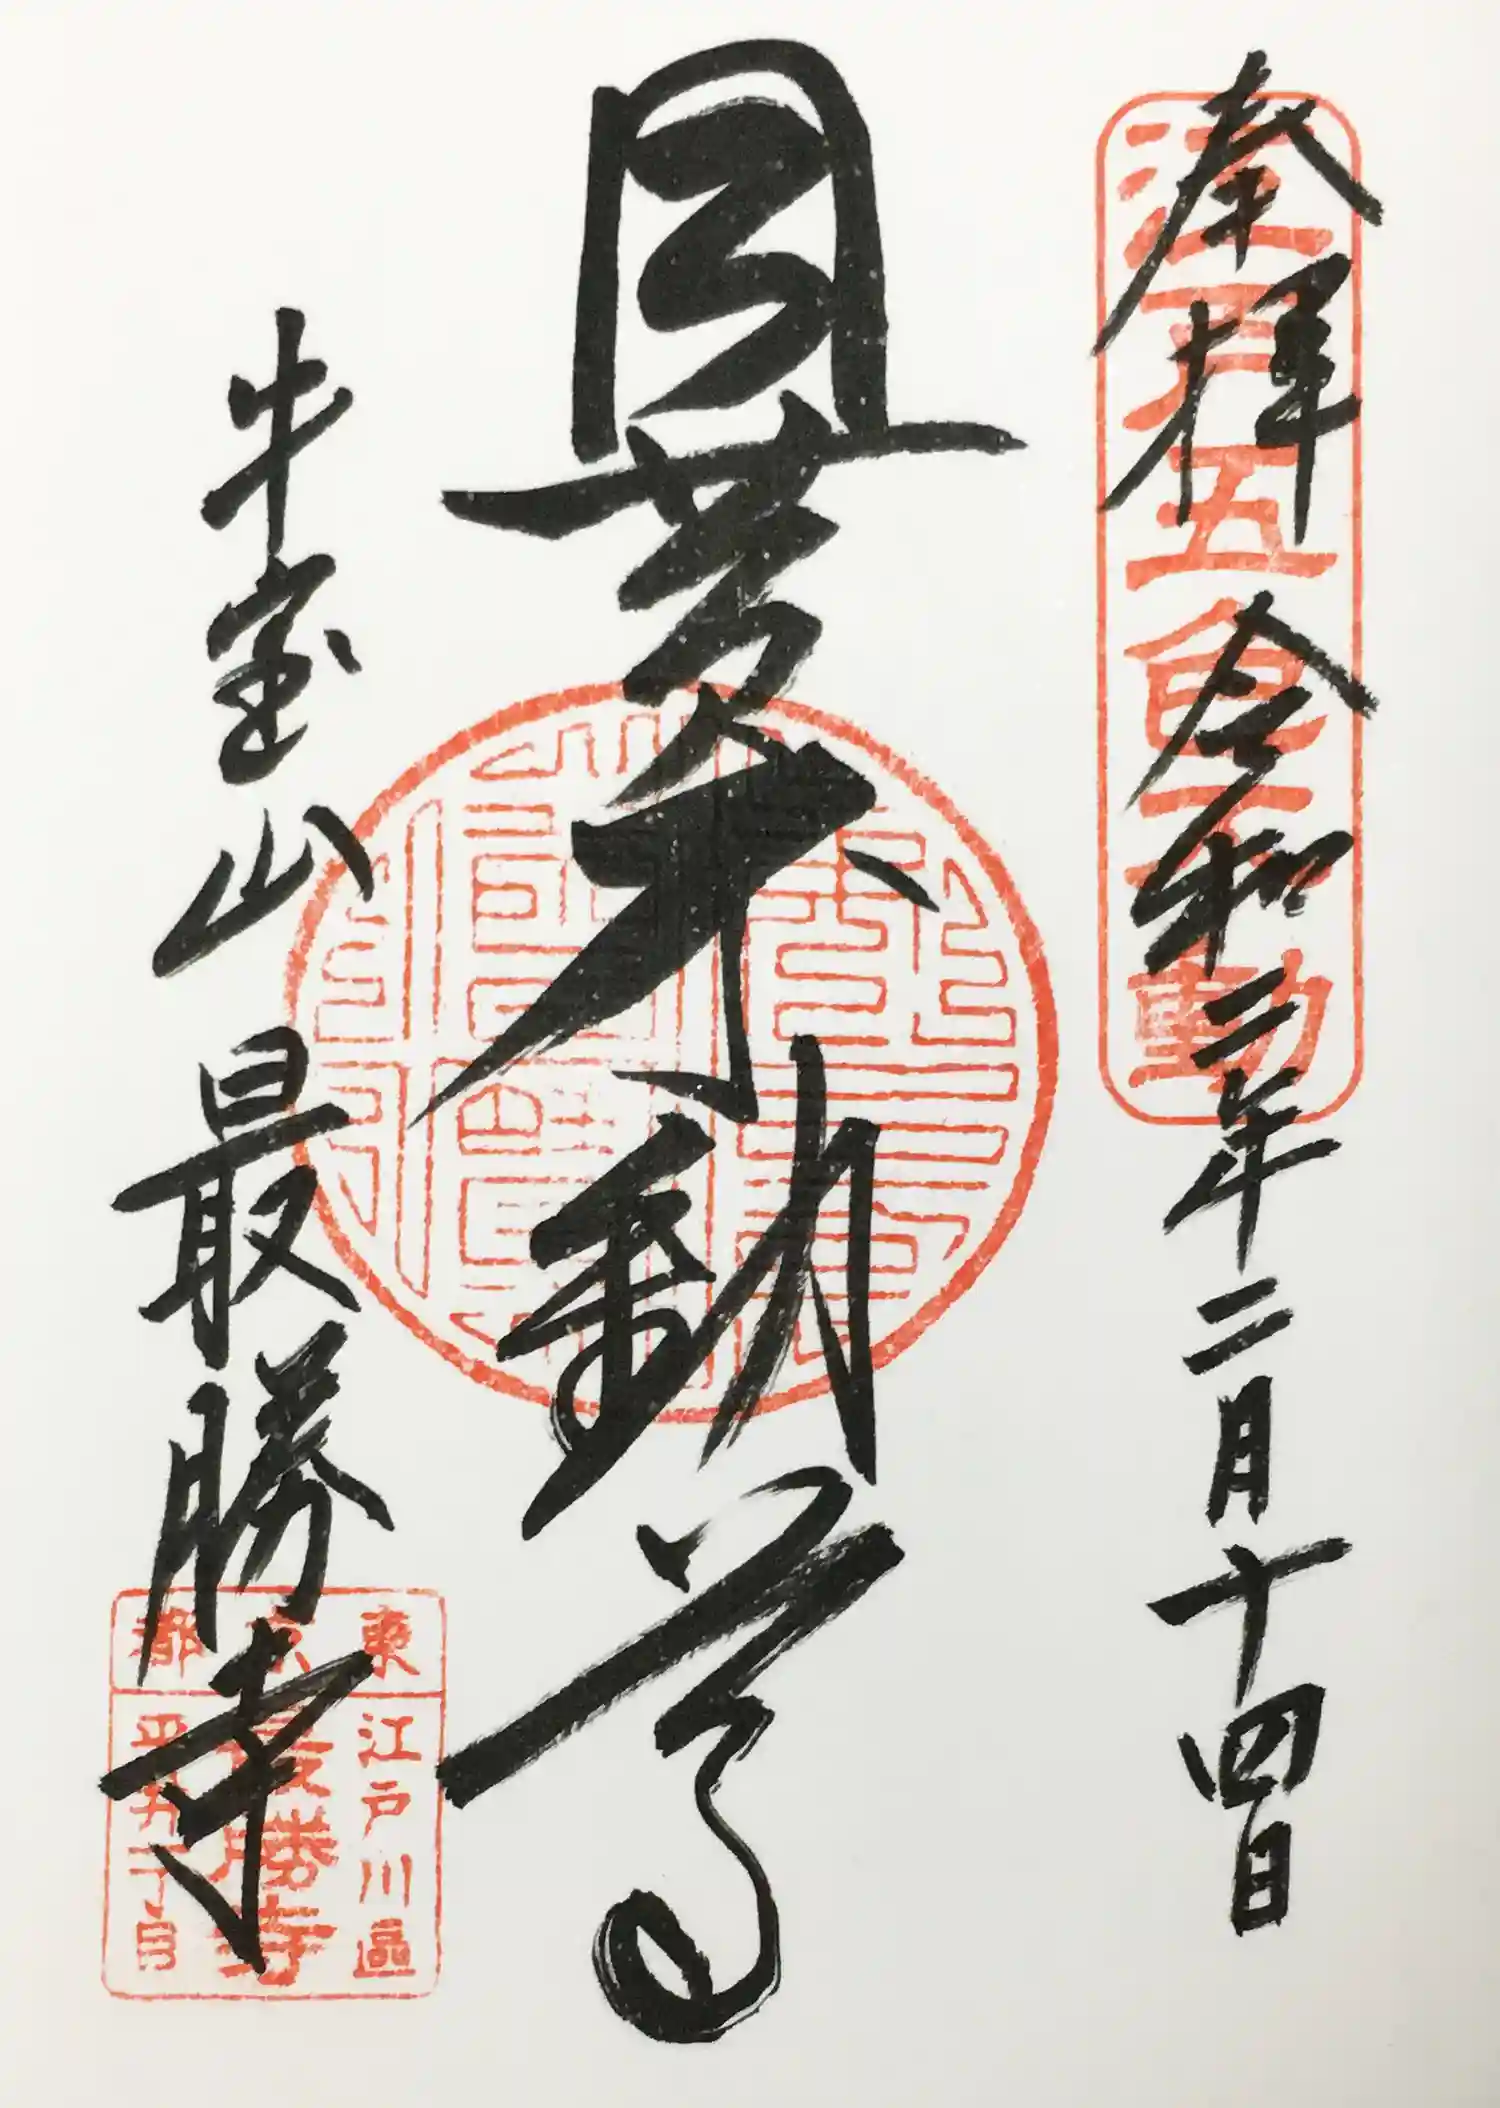 奉拝
令和二年二月十四日
江戸五色不動
目黄不動尊
牛宝山
最勝寺
東京都
江戸川區
最勝寺
平井一丁目